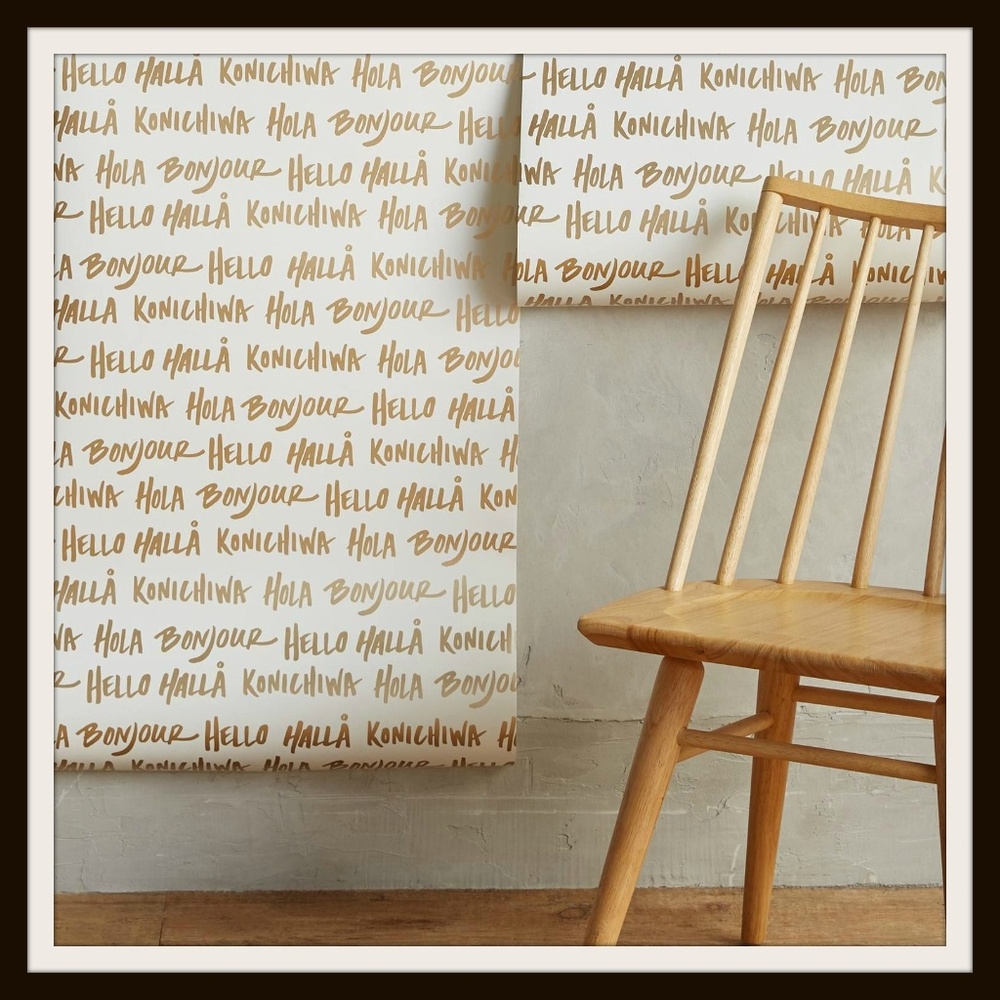 HELLO HALLÅ KONICHIWA HOLA BONJOUR
HALLÅ KONICHIWA HOLA BONJOUR HELLO
HOLA BONJOUR HELLO HALLÅ
HELLO HALLÅ KONICHIWA HOLA
BONJOUR HELLO HALLÅ KONICHIWA
HALLÅ KONICHIWA HOLA BONJOUR HELLO
HELLO HALLÅ KONICHIWA HOLA
KONICHIWA HOLA BONJOUR HELLO HALLÅ
BONJOUR HELLO HALLÅ KONICHIWA
HOLA BONJOUR HELLO HALLÅ
HELLO HALLÅ KONICHIWA HOLA BONJOUR
HALLÅ KONICHIWA HOLA BONJOUR HELLO
HOLA BONJOUR HELLO HALLÅ
HELLO HALLÅ KONICHIWA HOLA
BONJOUR HELLO HALLÅ KONICHIWA
HELLO HALLÅ KONICHIWA HOLA
HALLÅ KONICHIWA HOLA BONJOUR
HOLA BONJOUR HELLO HALLÅ
HELLO HALLÅ KONICHIWA HOLA
HOLA BONJOUR HELLO HALLÅ KONICHIWA